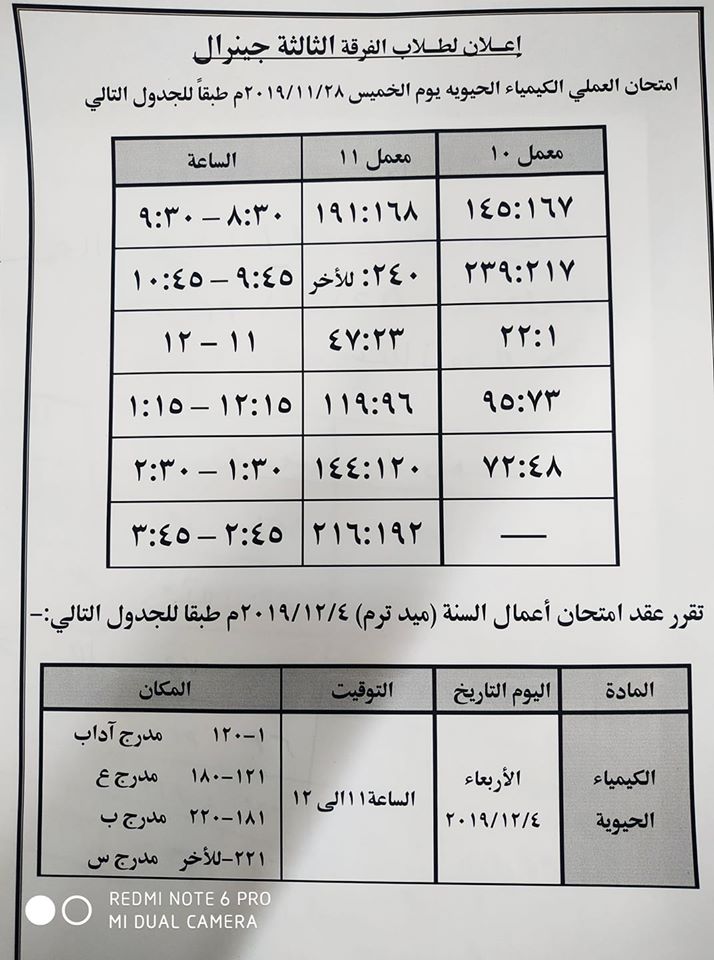 إعــلان لطــلاب الفرقة الثالثة جينرال
امتحان العملي الكيمياء الحيويه يوم الخميس ٢٠١٩/١١/٢٨م طبقاً للجدول التالي
معمل ١٠ معمل ١١ الساعة
١٤٥:١٦٧ ١٩١:١٦٨ ٨:٣٠ – ٩:٣٠
٢٣٩:٢١٧ ٢٤٠: للأخر ٩:٤٥ – ١٠:٤٥
٢٢:١ ٤٧:٢٣ ١١ – ١٢
٩٥:٧٣ ١١٩:٩٦ ١٢:١٥ – ١:١٥
٧٢:٤٨ ١٤٤:١٢٠ ١:٣٠ – ٢:٣٠
— ٢١٦:١٩٢ ٢:٤٥ – ٣:٤٥
تقرر عقد امتحان أعمال السنة (ميد ترم) ٢٠١٩/١٢/٤م طبقا للجدول التالي:–
المادة اليوم التاريخ التوقيت المكان
الكيمياء الحيوية
الأربعاء
٢٠١٩/١٢/٤
الساعة١١الى ١٢
١–١٢٠ مدرج آداب
١٢١–١٨٠ مدرج ع
١٨١–٢٢٠ مدرج ب
٢٢١–للأخر مدرج س
REDMI NOTE 6 PRO
MI DUAL CAMERA